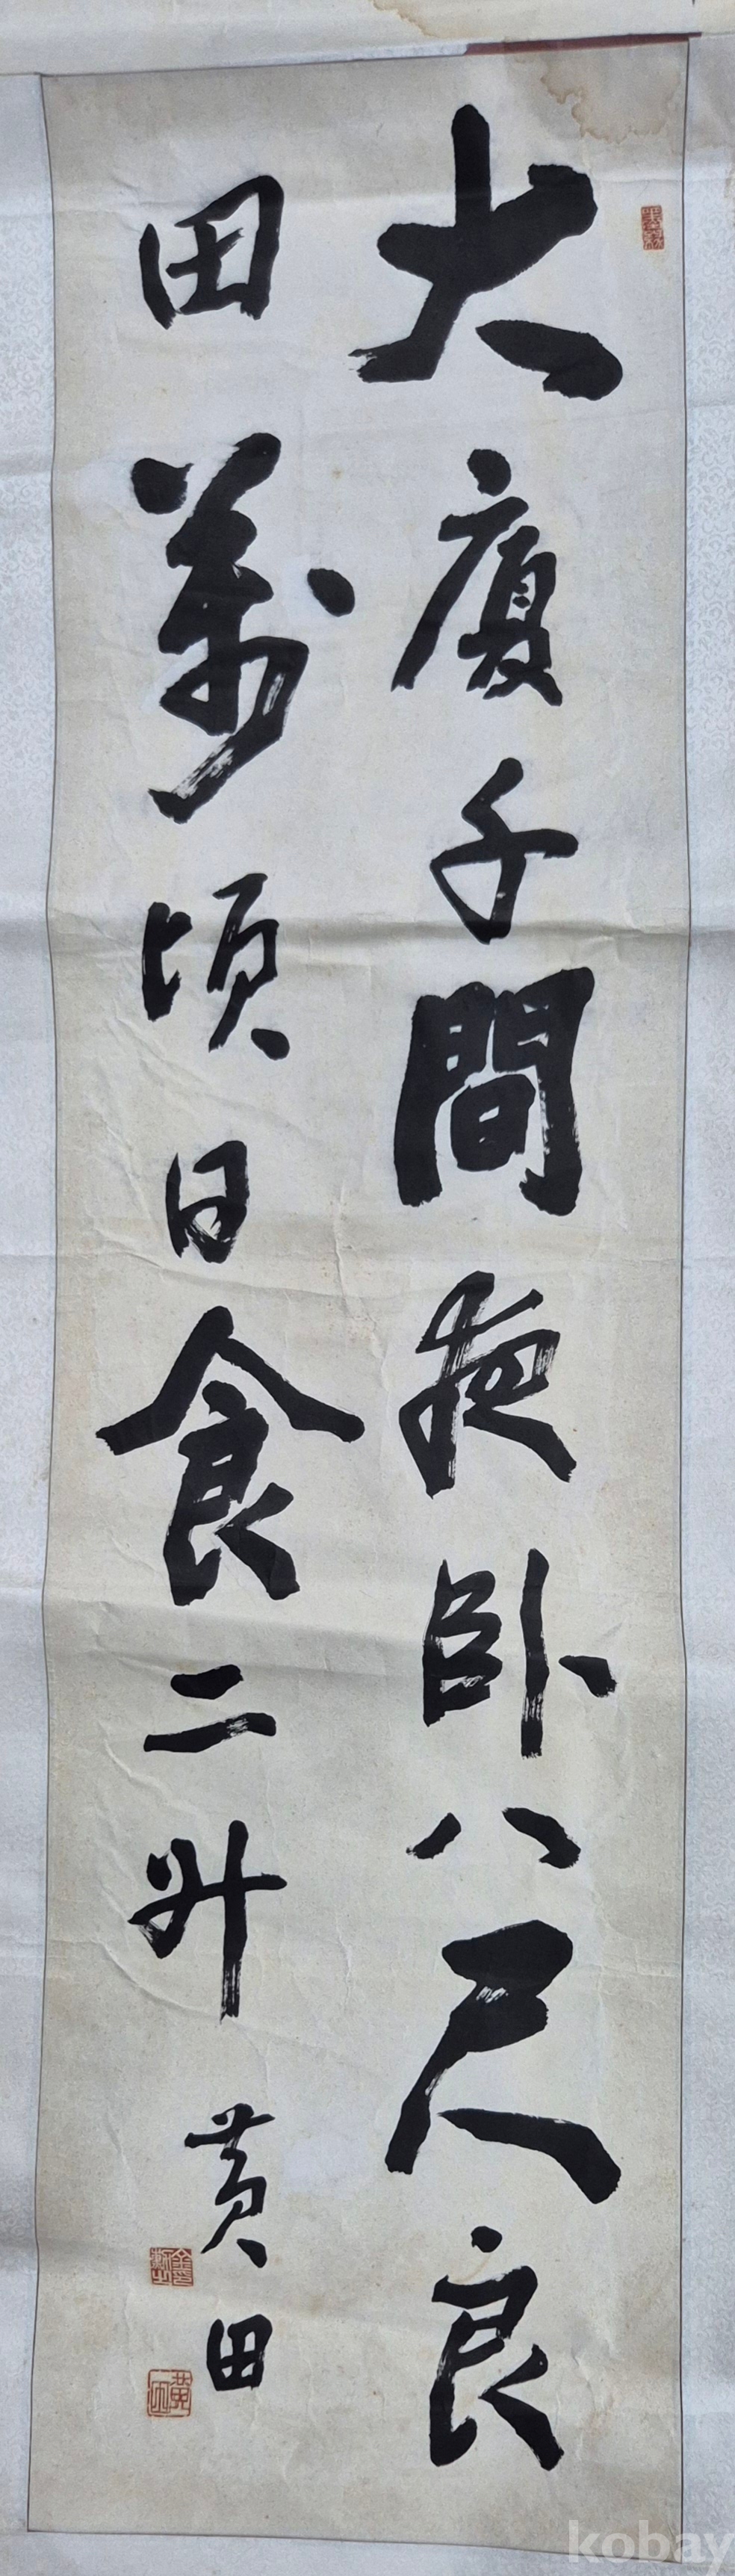 大厦千間夜卧八尺良
田萬頃日食二升
黄田
kobay